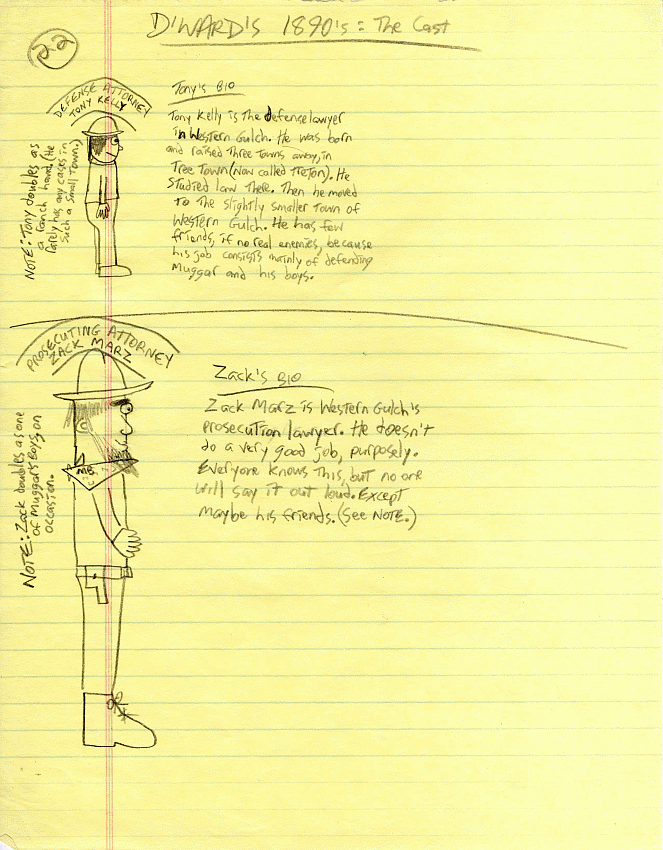 D'WARD'S 1890's: The Cast
22
DEFENSE ATTORNEY
TONY KELLY
NOTE: Tony doubles as
a ranch hand. (He
rarely has any cases in
such a small town.)
Tony's BIO
Tony Kelly is the defense lawyer
in Western Gulch. He was born
and raised three towns away, in
Tree Town (Now called TreTon). He
studied law there. Then he moved
to the slightly smaller town of
Western Gulch. He has few
friends, if no real enemies, because
his job consists mainly of defending
Muggar and his boys.
PROSECUTING ATTORNEY
ZACK MARZ
NOTE: Zack doubles as one
of Muggar's Boys on
occasion.
MB
Zack's BIO
Zack Marz is Western Gulch's
prosecution lawyer. He doesn't
do a very good job, purposely.
Everyone knows this, but no one
will say it out loud. Except
maybe his friends. (See NOTE.)